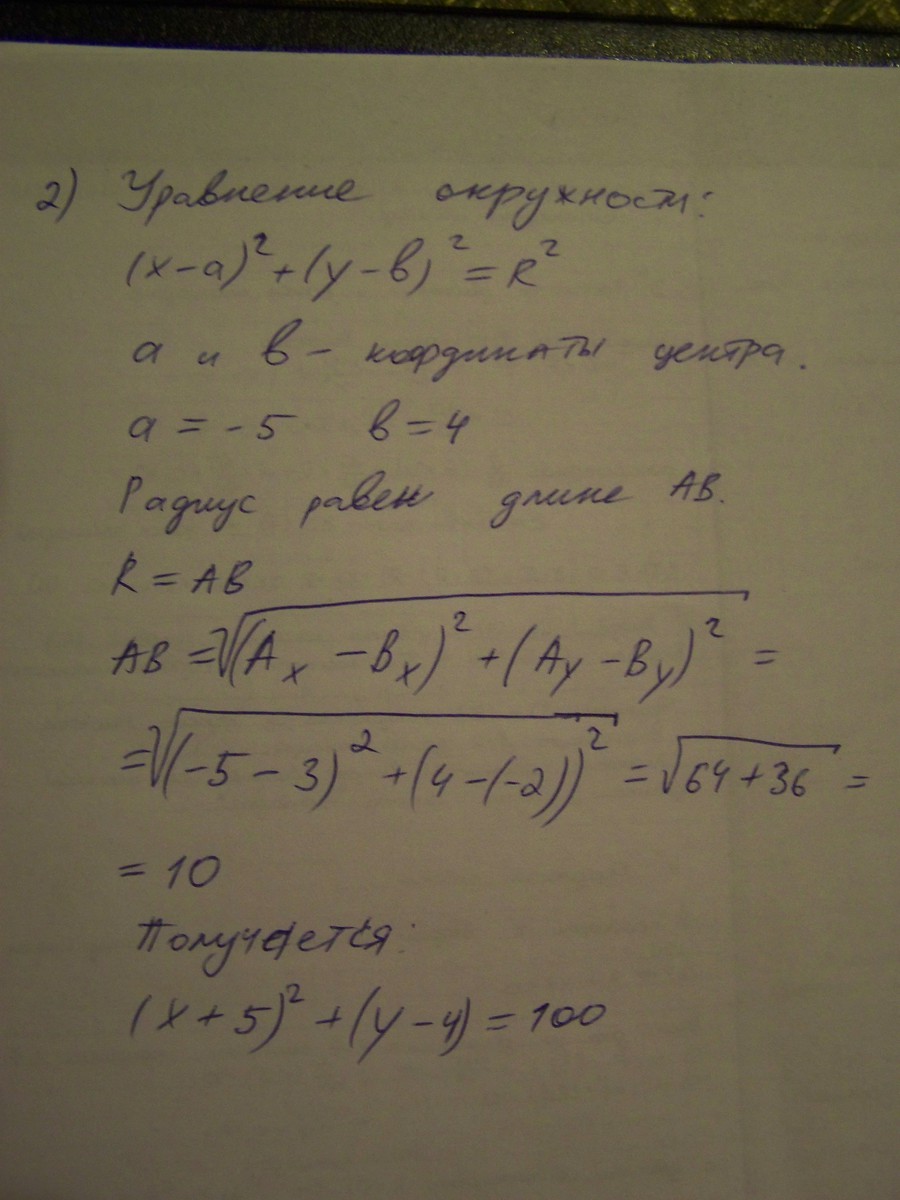 2) Уравнение окружности:
(x-a)²+(y-в)²=R²
a и в - координаты центра.
a = -5 в = 4
Радиус равен длине AB.
R = AB
AB = √(Aₓ - Bₓ)² + (Aᵧ - Bᵧ)² =
= √(-5 - 3)² + (4 - (-2))² = √64 + 36 =
= 10
Получается:
(x + 5)² + (y - 4) = 100